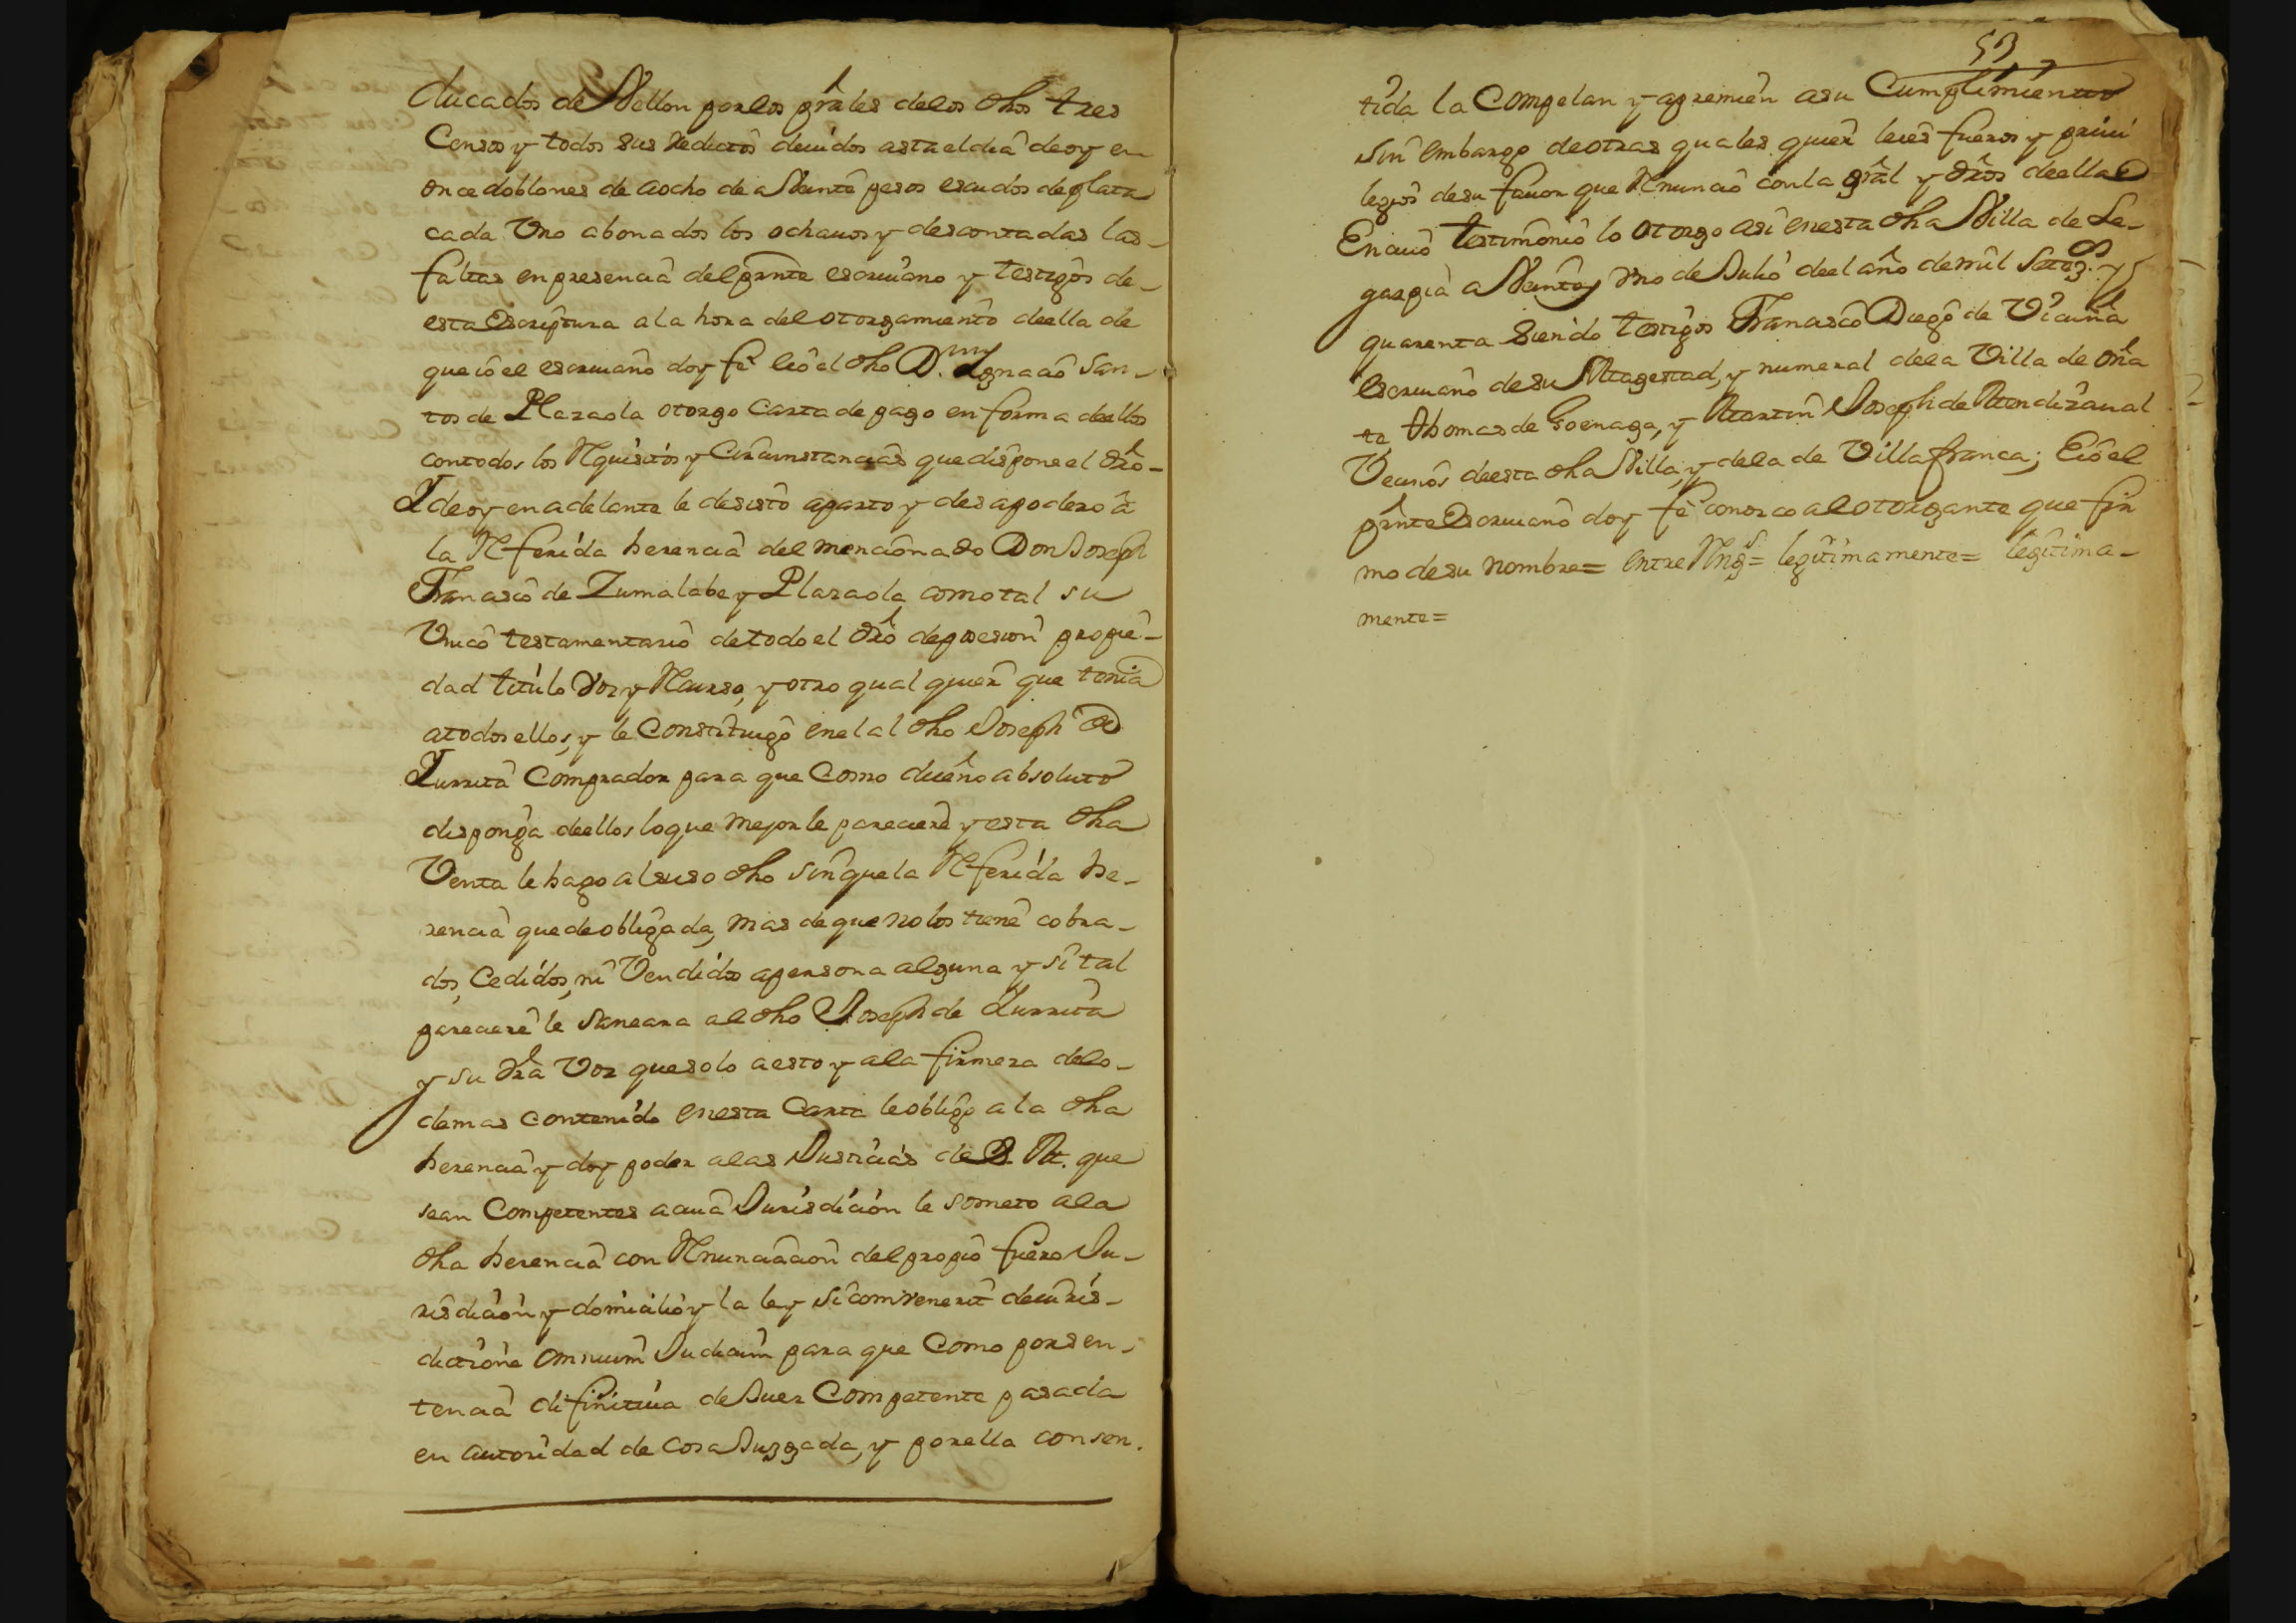 ducados de Vellon por los prâles delos dhos tres
Censos y todos sus reditos deuidos asta el dia de oy en
once doblones de aocho de a Veinte pesos escudos de plata
cada Vno abonados los ochauos y descontadas las
faltas en presencia del prnte escriuano y testigos de
esta Escriptura a la hora del otorgamiento de ella de
que io el escriuano doy fe e io el dho Dn. Ignacio San-
tos de Plazaola otorgo Carta de pago en forma de ellos
con todos los Requisitos y Circunstancias que dispone el dro-
Y de oy en adelante le desisto aparto y desapodero â
la Referida herencia del mencionado Don Joseph
Francisco de Zumalabe y Plazaola como tal su
Vnico testamentario de todo el dro deposesion propie-
dad titulo Voz y Recurso, y otro qual quier que tenia
a todos ellos, y le Constituigo en el al dho Joseph de
Yurrita Comprador para que Como dueño absoluto
disponga de ellos lo que mejor le pareciere y esta dha
Venta le hago al suso dho sin que la Referida he-
rencia quede obligada, mas de que no los tiene cobra-
dos, Cedidos, ni Vendidos a persona alguna y si tal
pareciere le saneara al dho Joseph de Yurrita
y su dra Voz que solo a esto y a la firmeza delo-
demas contenido en esta Carta le obligo a la dha
herencia y doy poder a las Justicias de S. M. que
sean Competentes a cuia Jurisdicion le someto a la
dha herencia con Renunciacion del propio fuero Ju-
risdicion y domicilio y la ley si combenerit de iuris-
dictione omnium Judicum para que Como por sen-
tencia difinitiua de Juez Competente pasada
en autoridad de Cosa Juzgada, y por ella consen.
53
tida la Compelan y apremien a su Cumplimiento
sin embargo de otras quales quier leies fueros y priui
legios de su fauor que Renuncio con la gral y dros de ella
En cuio testimonio lo otorgo asi en esta dha Villa de Le-
gazpia a Veinte y vno de Julio de el año de mil Setez.os y
quarenta siendo testigos Francisco Diego de Vicuña
escriuano de su Magestad, y numeral de la Villa de Oña
te Thomas de Goenaga, y Martin Joseph de Mendizaual
Vecinos de esta dha Villa, y de la de Villafranca; E io el
prnte Escriuano doy fe conozco al otorgante que fir
mo de su nombre= entre Rngs= legitimamente= legitima-
mente=